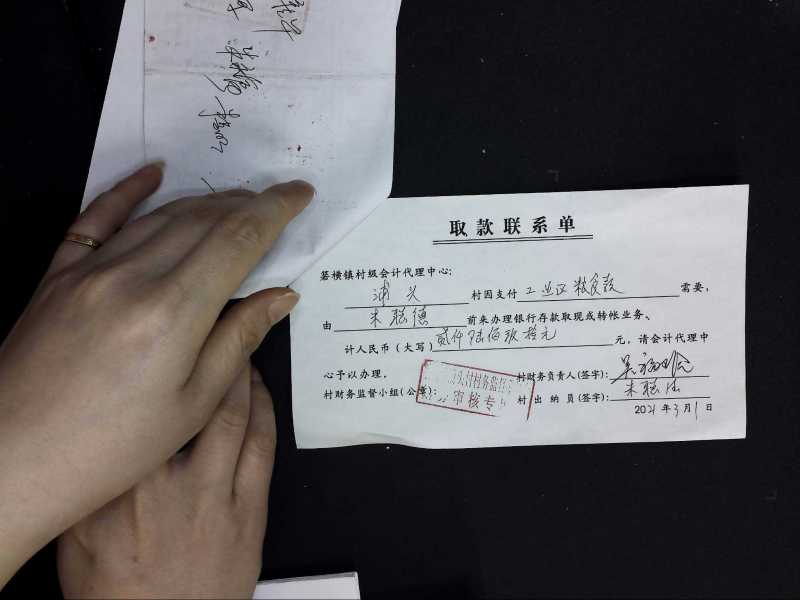 取款联系单
箬横镇村级会计代理中心:
浦头 村因支付 工业区粮食款 需要,
由 朱聪德 前来办理银行存款取现或转帐业务、
计人民币(大写) 贰仟陆佰玖拾元 元,请会计代理中
心予以办理。 村财务负责人(签字):
村财务监督小组(公章): 头村村务监 审核专 村出纳员(签字): 朱聪德
2021 年 3 月 1 日